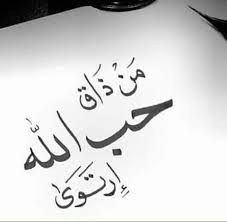 مَنْ ذَاق
حب الله
إرتوىَ